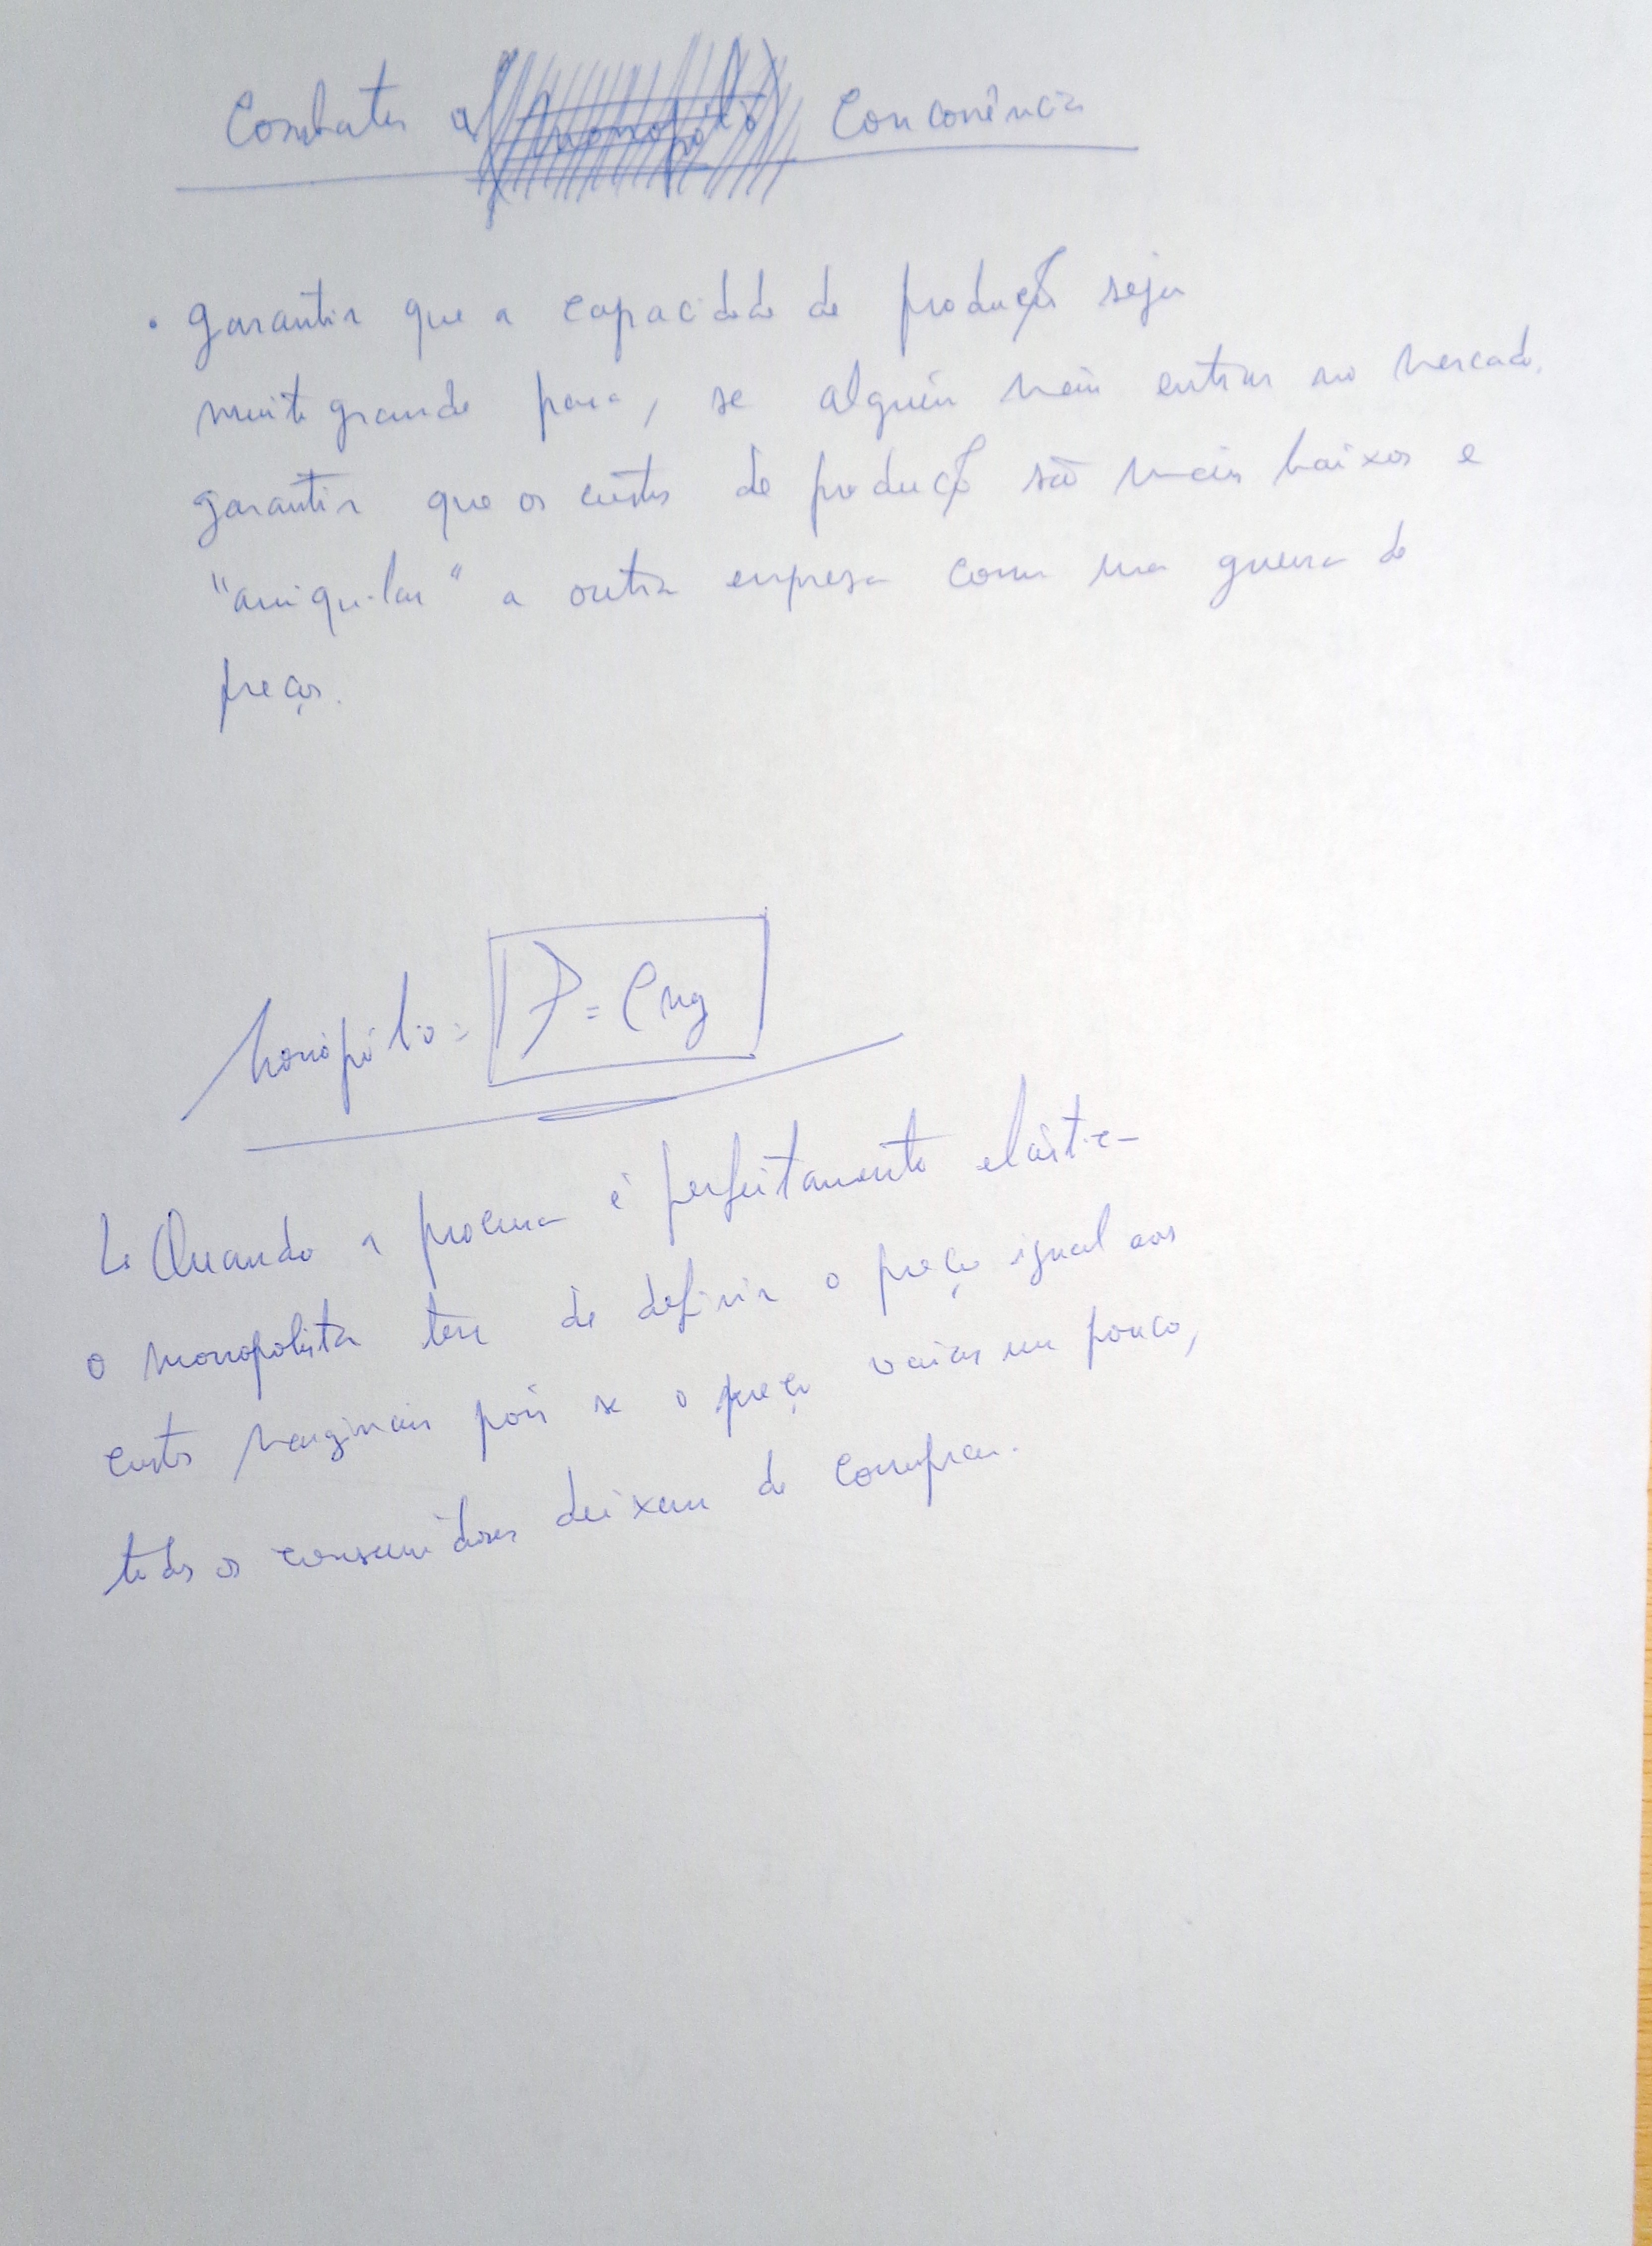 Combater a Concorrência
• Garantir que a capacidade de produção seja
muito grande para, se alguém vem entrar no mercado,
garantir que os custos de produção são mais baixos e
"aniquilar" a outra empresa com uma guerra de
preços.
Monopólio: P = Cmg
↳ Quando a procura é perfeitamente elástica
o monopolista tem de definir o preço igual aos
custos marginais pois se o preço variar um pouco,
todos os consumidores deixam de comprar.